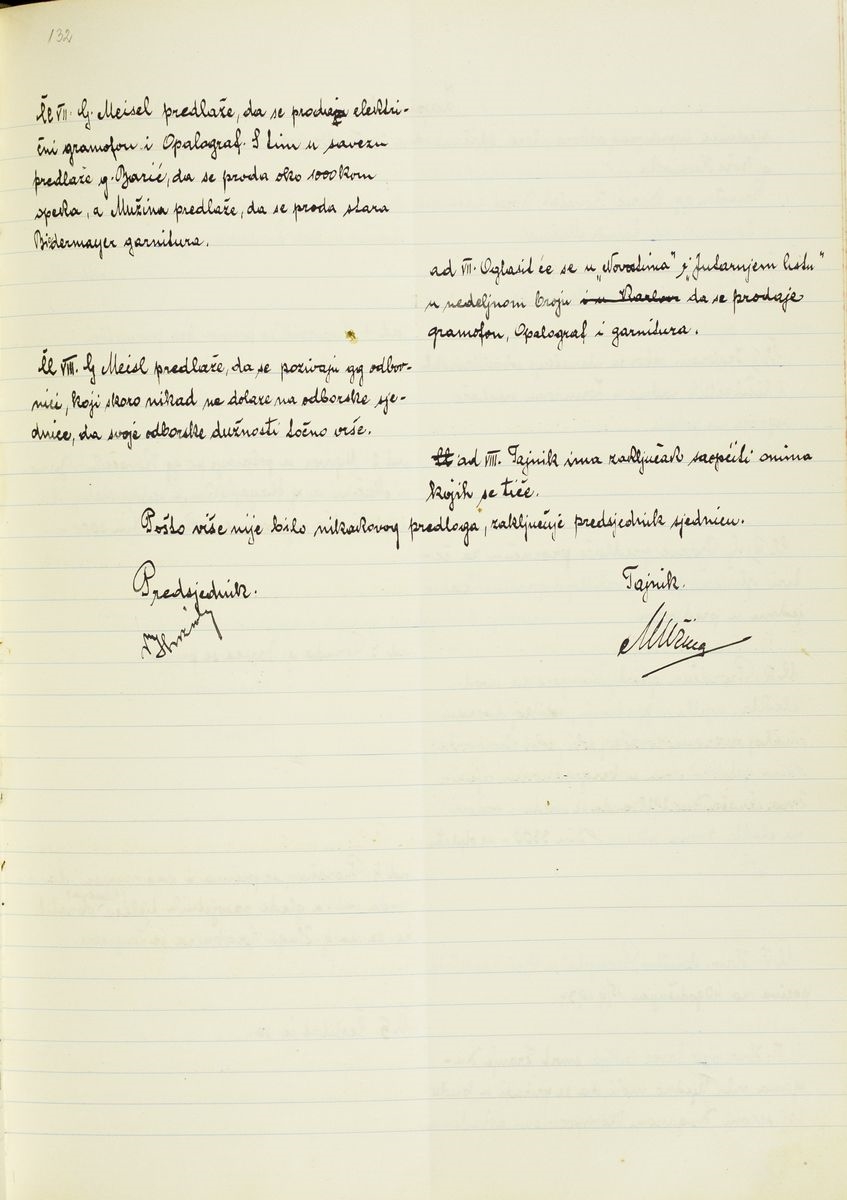 132
Čl VII. G. Meisel predlaže, da se prodaja elektri-
čni gramofon i Opalograf. S tim u savezu
predlaže g. Barić, da se proda oko 1000 kom
opeka, a Mužina predlaže, da se proda stara
Biedermayer garnitura.
ad VII. Oglasit će se u „Novostima" i „Jutarnjem listu"
u nedeljnom broju i u Karlov da se prodaje
gramofon, Opalograf i garnitura.
Čl VIII. G Meisl predlaže, da se pozivaju gg odbor-
nici, koji skoro nikad ne dolaze na odborske sje-
dnice, da svoje odborske dužnosti točno vrše.
Čl ad VIII. Tajnik ima zaključak saopćiti onima
kojih se tiče.
Pošto više nije bilo nikakovog predloga, zaključuje predsjednik sjednicu.
Predsjednik. Tajnik.
Mužina